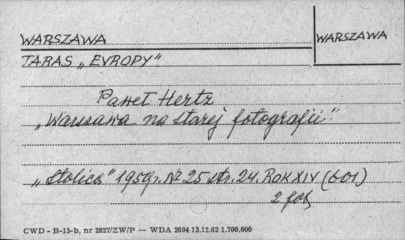 WARSZAWA
WARSZAWA
TARAS „EVROPY"
Paweł Hertz
„Warszawa na starej fotografii"
„Stolica" 1959r. № 25 str. 24. ROK XIV (601)
2 fot.
CWD - B-15-b, nr 2827/ZW/P — WDA 2694 13.12.62 1.700.000